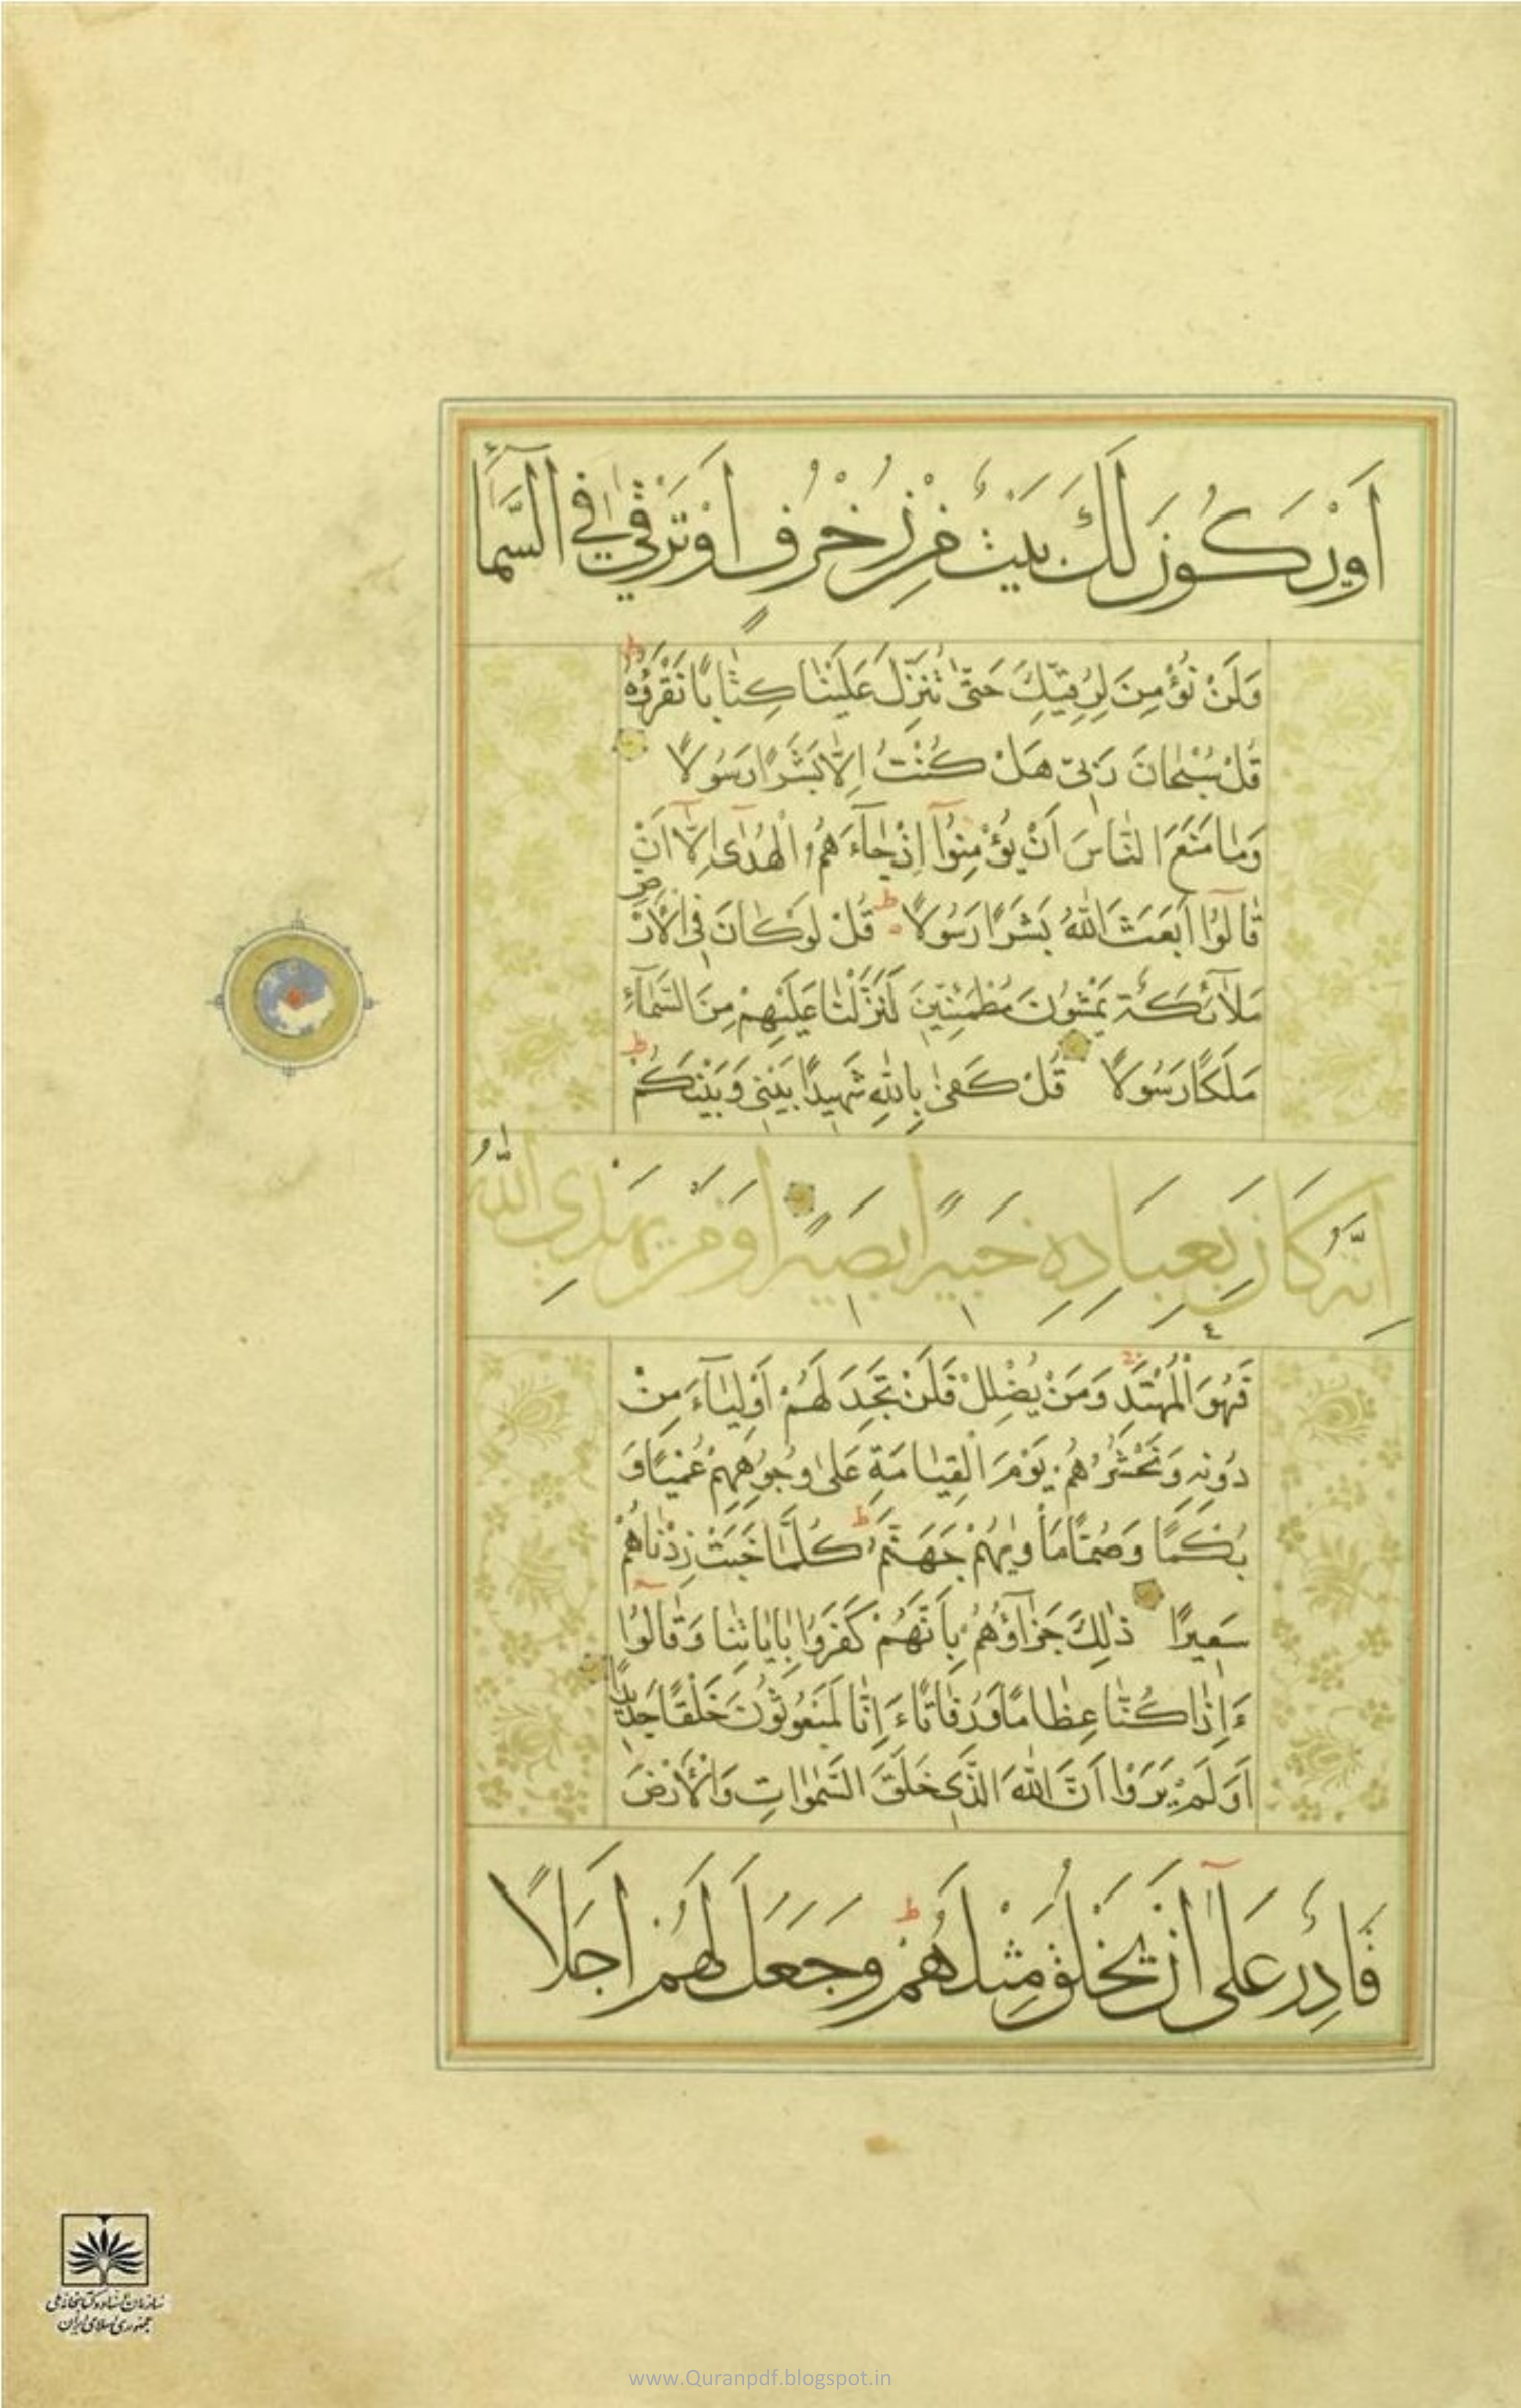 اَوْ يَكُونَ لَكَ بَيْتٌ مِنْ زُخْرُفٍ اَوْ تَرْقٰى فِي السَّمَآءِ
وَلَنْ نُؤْمِنَ لِرُقِيِّكَ حَتّٰى تُنَزِّلَ عَلَيْنَا كِتَابًا نَقْرَؤُهُ ط
قُلْ سُبْحَانَ رَبّى هَلْ كُنْتُ اِلَّا بَشَرًا رَسُولًا
وَمَا مَنَعَ النَّاسَ اَنْ يُؤْمِنُوٓا اِذْ جَآءَهُمُ الْهُدٰٓى اِلَّآ اَنْ
قَالُوٓا اَبَعَثَ اللّٰهُ بَشَرًا رَسُولًا ط قُلْ لَوْ كَانَ فِى الْاَرْضِ
مَلَآئِكَةٌ يَمْشُونَ مُطْمَئِنّينَ لَنَزَّلْنَا عَلَيْهِمْ مِنَ السَّمَآءِ
مَلَكًا رَسُولًا قُلْ كَفٰى بِاللّٰهِ شَهيدًا بَيْنى وَبَيْنَكُمْ ط
اِنَّهُ كَانَ بِعِبَادِهِ خَبيرًا بَصيرًا وَمَنْ يَهْدِي اللّٰهُ
فَهُوَ الْمُهْتَدِ وَمَنْ يُضْلِلْ فَلَنْ تَجِدَ لَهُمْ اَوْلِيَآءَ مِنْ
دُونِهِ وَنَحْشُرُهُمْ يَوْمَ الْقِيَامَةِ عَلٰى وُجُوهِهِمْ عُمْيًا وَ
بُكْمًا وَصُمًّا مَأْوٰيهُمْ جَهَنَّمُ ط كُلَّمَا خَبَتْ زِدْنَاهُمْ
سَعيرًا ذٰلِكَ جَزَآؤُهُمْ بِاَنَّهُمْ كَفَرُوا بِاٰيَاتِنَا وَقَالُوٓا
ءَاِذَا كُنَّا عِظَامًا وَرُفَاتًا ءَاِنَّا لَمَبْعُوثُونَ خَلْقًا جَديدًا
اَوَلَمْ يَرَوْا اَنَّ اللّٰهَ الَّذى خَلَقَ السَّمٰوَاتِ وَالْاَرْضَ
قَادِرٌ عَلٰٓى اَنْ يَخْلُقَ مِثْلَهُمْ ط وَجَعَلَ لَهُمْ اَجَلًا
سازمان اسناد و کتابخانه ملی
جمهوری اسلامی ایران
www.Quranpdf.blogspot.in